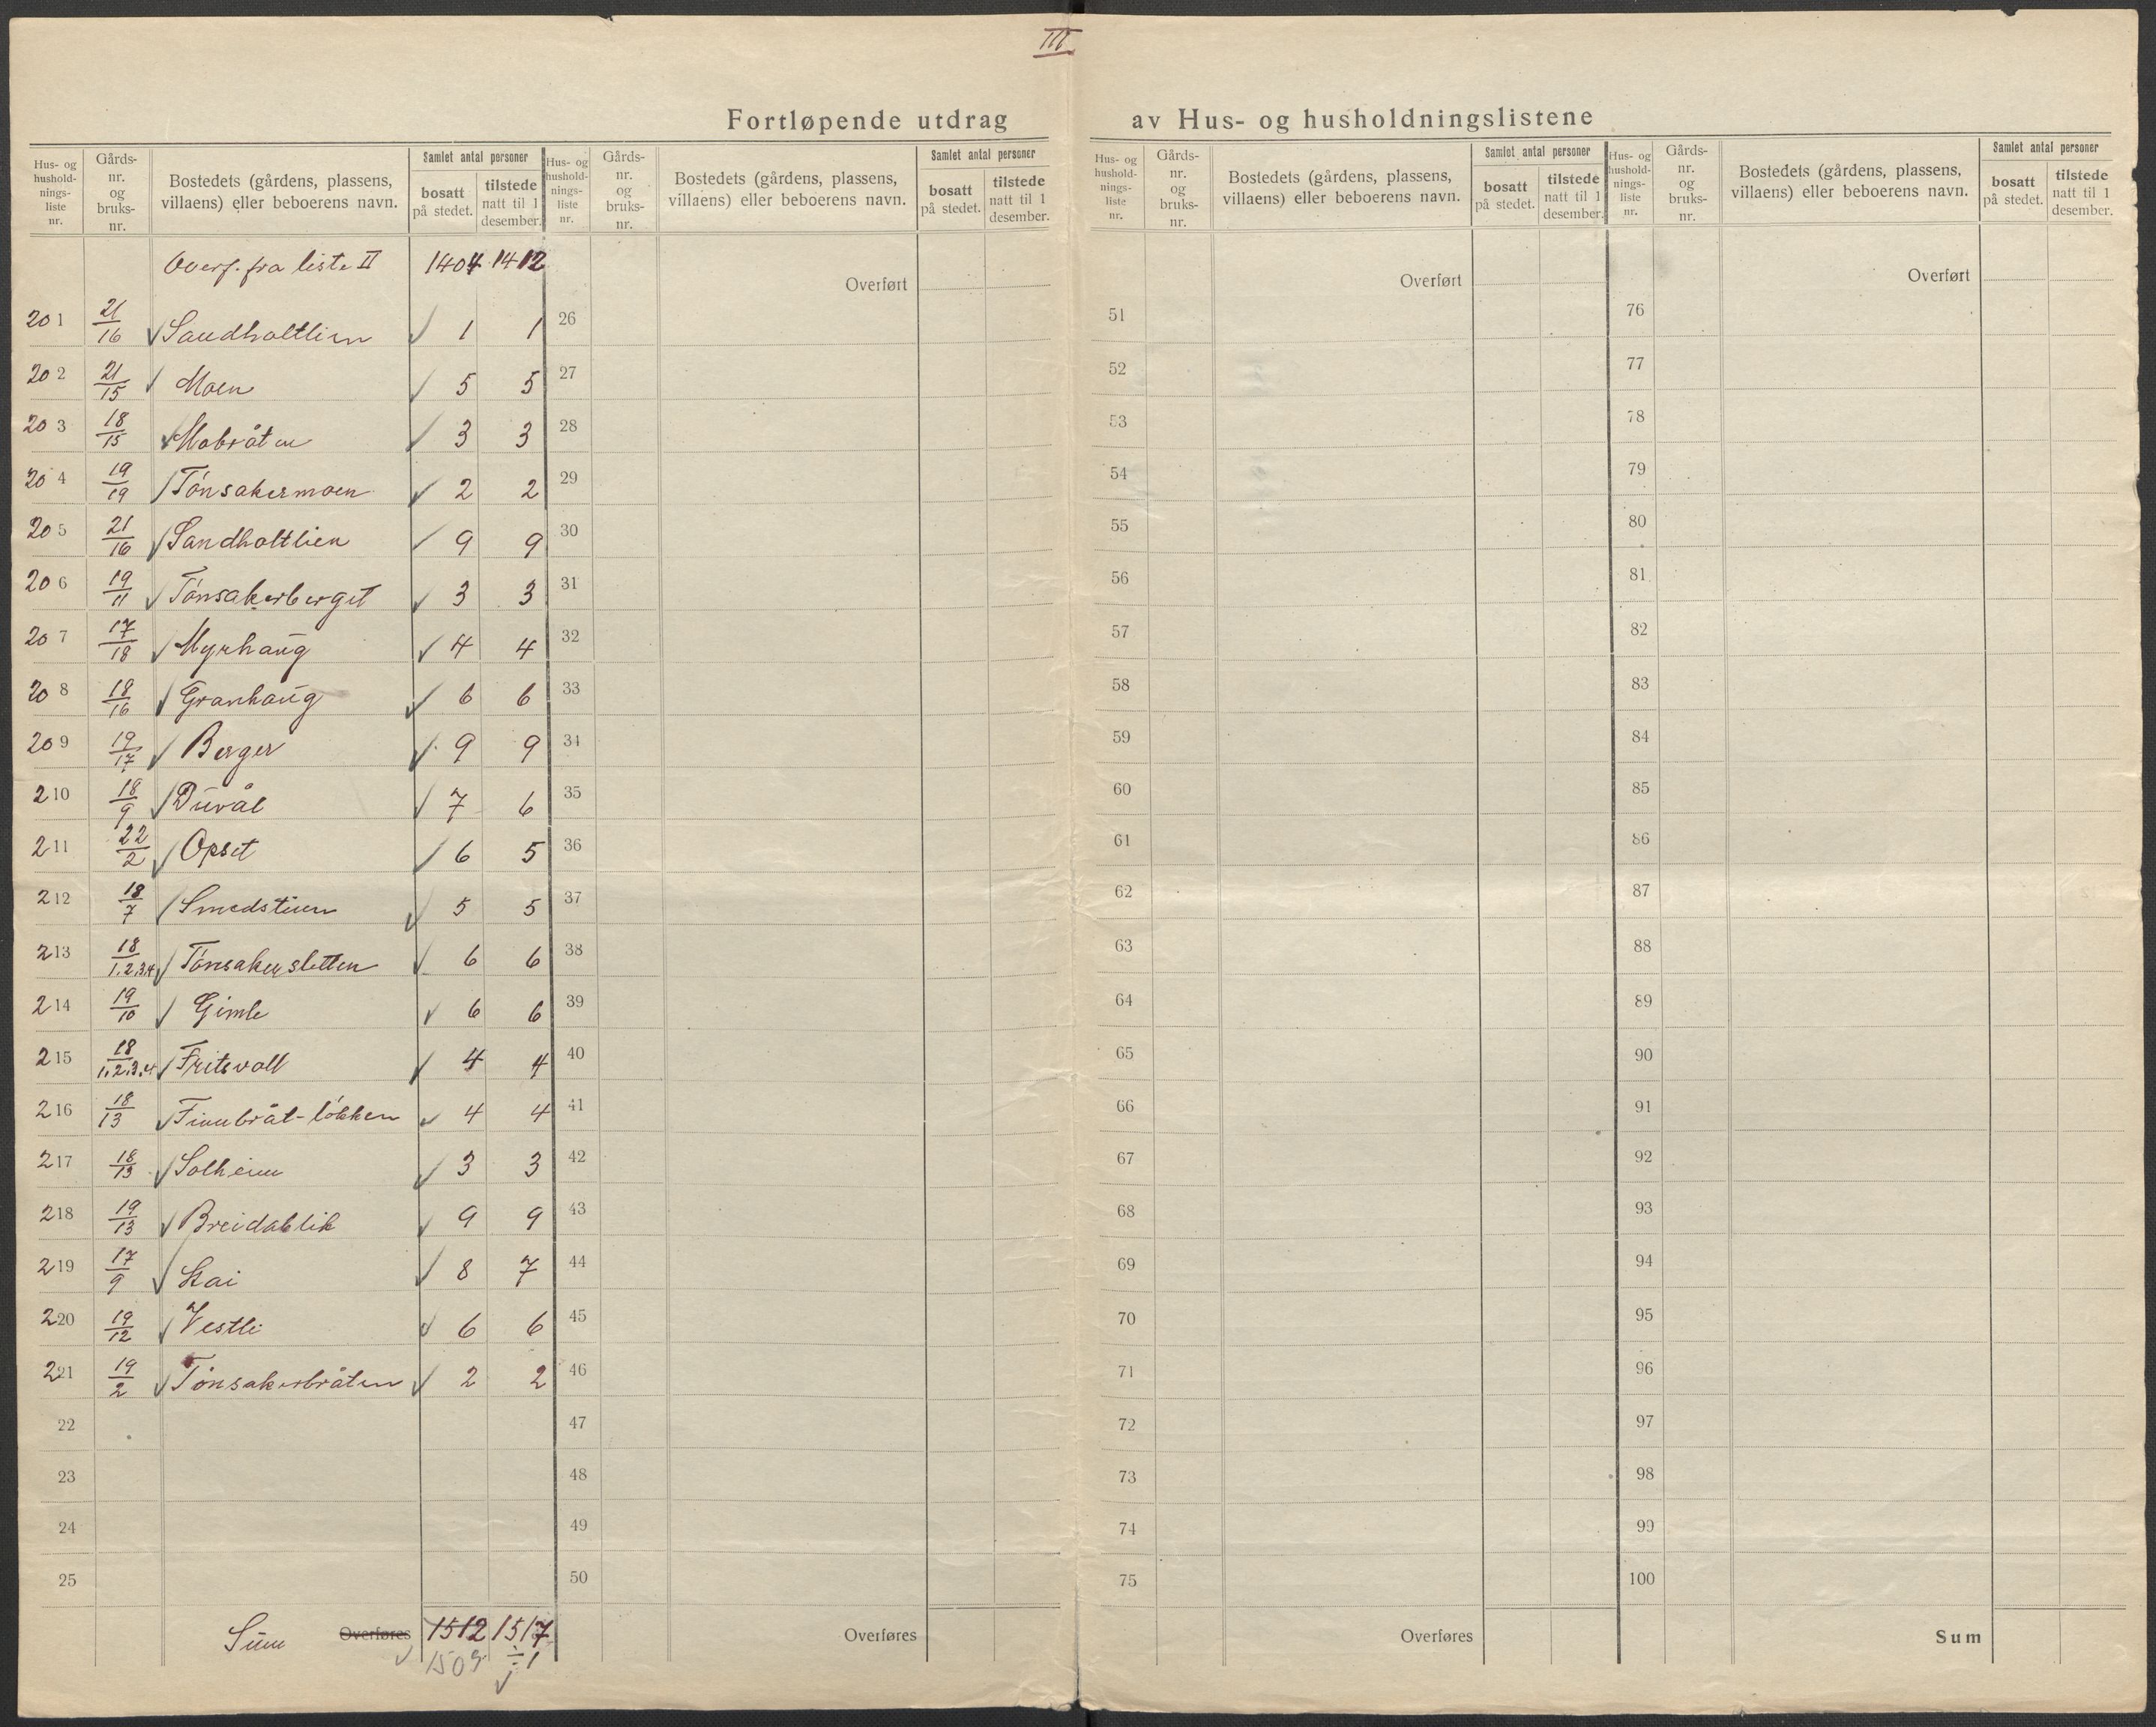 III
Fortløpende utdrag av Hus- og husholdningslistene
Hus- og hushold-nings-liste nr. | Gårds-nr. og bruks-nr. | Bostedets (gårdens, plassens, villaens) eller beboerens navn. | Samlet antal personer | bosatt på stedet. | tilstede natt til 1 desember.
Overf. fra liste II 1404 1412
201 21/16 Sandholtlien 1 1
202 21/15 Moen 5 5
203 18/15 Mobråten 3 3
204 19/19 Tónsakermoen 2 2
205 21/16 Sandholtlien 9 9
206 19/11 Tónsakerberget 3 3
207 17/18 Myrhaug 4 4
208 18/16 Granhaug 6 6
209 19/17 Berger 9 9
210 18/9 Duvål 7 6
211 22/2 Opset 6 5
212 18/7 Smedstuen 5 5
213 18/1.2.3.4 Tónsakersletten 6 6
214 19/10 Gimle 6 6
215 18/1.2.3.4 Fritsvoll 4 4
216 18/13 Finnbråt-lókken 4 4
217 18/13 Solheim 3 3
218 19/13 Breidablik 9 9
219 17/9 Stai 8 7
220 19/12 Vestli 6 6
221 19/2 Tónsakerbråten 2 2
22
23
24
25
Sum Overføres 1512 1517
1509 ÷1
Hus- og hushold-nings-liste nr. | Gårds-nr. og bruks-nr. | Bostedets (gårdens, plassens, villaens) eller beboerens navn. | Samlet antal personer | bosatt på stedet. | tilstede natt til 1 desember.
Overført
26
27
28
29
30
31
32
33
34
35
36
37
38
39
40
41
42
43
44
45
46
47
48
49
50
Overføres
Hus- og hushold-nings-liste nr. | Gårds-nr. og bruks-nr. | Bostedets (gårdens, plassens, villaens) eller beboerens navn. | Samlet antal personer | bosatt på stedet. | tilstede natt til 1 desember.
Overført
51
52
53
54
55
56
57
58
59
60
61
62
63
64
65
66
67
68
69
70
71
72
73
74
75
Overføres
Hus- og hushold-nings-liste nr. | Gårds-nr. og bruks-nr. | Bostedets (gårdens, plassens, villaens) eller beboerens navn. | Samlet antal personer | bosatt på stedet. | tilstede natt til 1 desember.
Overført
76
77
78
79
80
81
82
83
84
85
86
87
88
89
90
91
92
93
94
95
96
97
98
99
100
Sum